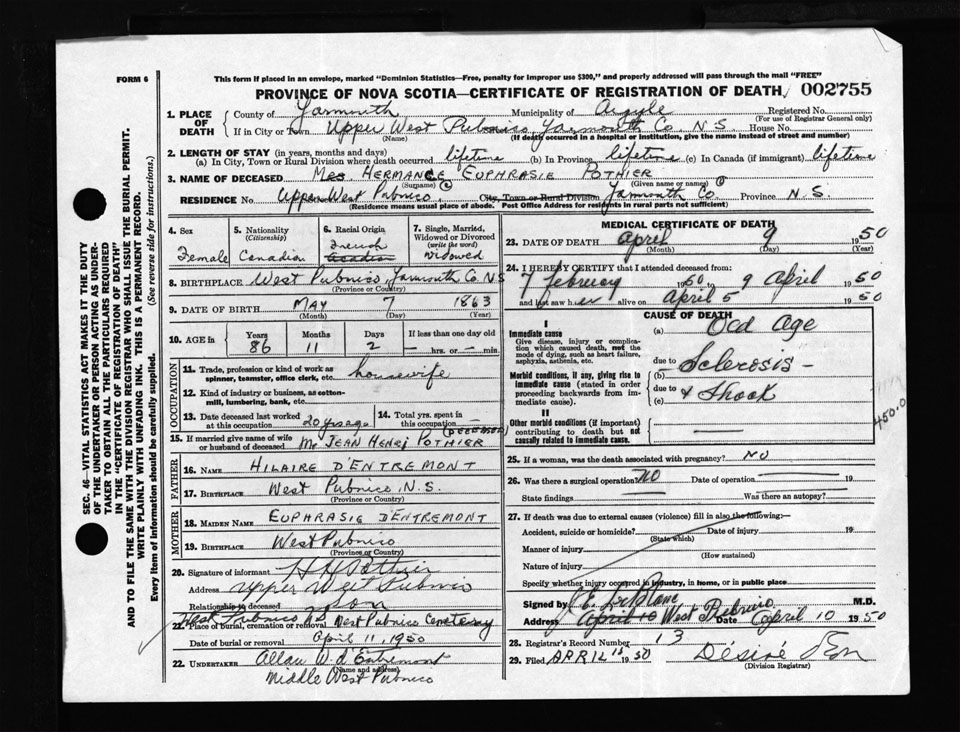 FORM 6
This form if placed in an envelope, marked "Dominion Statistics—Free, penalty for improper use $300," and properly addressed will pass through the mail "FREE"
PROVINCE OF NOVA SCOTIA—CERTIFICATE OF REGISTRATION OF DEATH 002755
1. PLACE OF DEATH
County of Yarmouth Municipality of Argyle Registered No.
(For use of Registrar General only)
If in City or Town Upper West Pubnico, Yarmouth Co. N.S. House No.
(Name) (If death occurred in a hospital or institution, give the name instead of street and number)
2. LENGTH OF STAY (in years, months and days)
(a) In City, Town or Rural Division where death occurred lifetime (b) In Province lifetime (c) In Canada (if immigrant) lifetime
3. NAME OF DECEASED Mrs HERMANCE EUPHRASIE POTHIER
(Surname) (Given name or names)
RESIDENCE No. Upper West Pubnico City, Town or Rural Division Yarmouth Co. Province N.S.
(Residence means usual place of abode. Post Office Address for residents in rural parts not sufficient)
4. Sex Female
5. Nationality (Citizenship) Canadian
6. Racial Origin French Acadian
7. Single, Married, Widowed or Divorced (write the word) widowed
8. BIRTHPLACE West Pubnico, Yarmouth Co. N.S
(Province or Country)
9. DATE OF BIRTH MAY 7 1863
(Month) (Day) (Year)
10. AGE in Years Months Days If less than one day old
86 11 2 — hrs. or — min.
OCCUPATION
11. Trade, profession or kind of work as spinner, teamster, office clerk, etc. housewife
12. Kind of industry or business, as cotton-mill, lumbering, bank, etc.
13. Date deceased last worked at this occupation 20 yrs ago
14. Total yrs. spent in this occupation
15. If married give name of wife or husband of deceased Mr JEAN HENRI POTHIER (DECEASED)
FATHER
16. NAME HILAIRE D'ENTREMONT
17. BIRTHPLACE West Pubnico, N.S.
(Province or Country)
MOTHER
18. MAIDEN NAME EUPHRASIE D'ENTREMONT
19. BIRTHPLACE West Pubnico
(Province or Country)
20. Signature of informant H H Pothier
Address Upper West Pubnico
Relationship to deceased son
21. Place of burial, cremation or removal West Pubnico N.S West Pubnico Cemetery
Date of burial or removal April 11, 1950
22. UNDERTAKER Allan W. d'Entremont
(Name and address)
Middle West Pubnico
MEDICAL CERTIFICATE OF DEATH
23. DATE OF DEATH April 9 1950
(Month) (Day)
24. I HEREBY CERTIFY that I attended deceased from:
7 February 1950 to 9 April 1950
and last saw her alive on April 5 1950
CAUSE OF DEATH
I
Immediate cause
Give disease, injury or complication which caused death, not the mode of dying, such as heart failure, asphyxia, asthenia, etc.
(a) Old Age
due to
Morbid conditions, if any, giving rise to immediate cause (stated in order proceeding backwards from immediate cause).
(b) Sclerosis —
due to
(c) + Shock
II
Other morbid conditions (if important) contributing to death but not causally related to immediate cause.
450.0
25. If a woman, was the death associated with pregnancy? NO
26. Was there a surgical operation? NO Date of operation
State findings Was there an autopsy?
27. If death was due to external causes (violence) fill in also the following:—
Accident, suicide or homicide? Date of injury 19
(State which)
Manner of injury
(How sustained)
Nature of injury
Specify whether injury occurred in industry, in home, or in public place
Signed by M.D.
Address April 10 West Pubnico Date April 10 1950
28. Registrar's Record Number 13
29. Filed APRIL 1950 Désiré
(Division Registrar)
SEC. 46—VITAL STATISTICS ACT MAKES IT THE DUTY
OF THE UNDERTAKER OR PERSON ACTING AS UNDERTAKER TO OBTAIN ALL THE PARTICULARS REQUIRED
IN THE "CERTIFICATE OF REGISTRATION OF DEATH"
AND TO FILE THE SAME WITH THE DIVISION REGISTRAR WHO SHALL ISSUE THE BURIAL PERMIT.
WRITE PLAINLY WITH UNFADING INK. THIS IS A PERMANENT RECORD.
Every item of information should be carefully supplied. (See reverse side for instructions.)